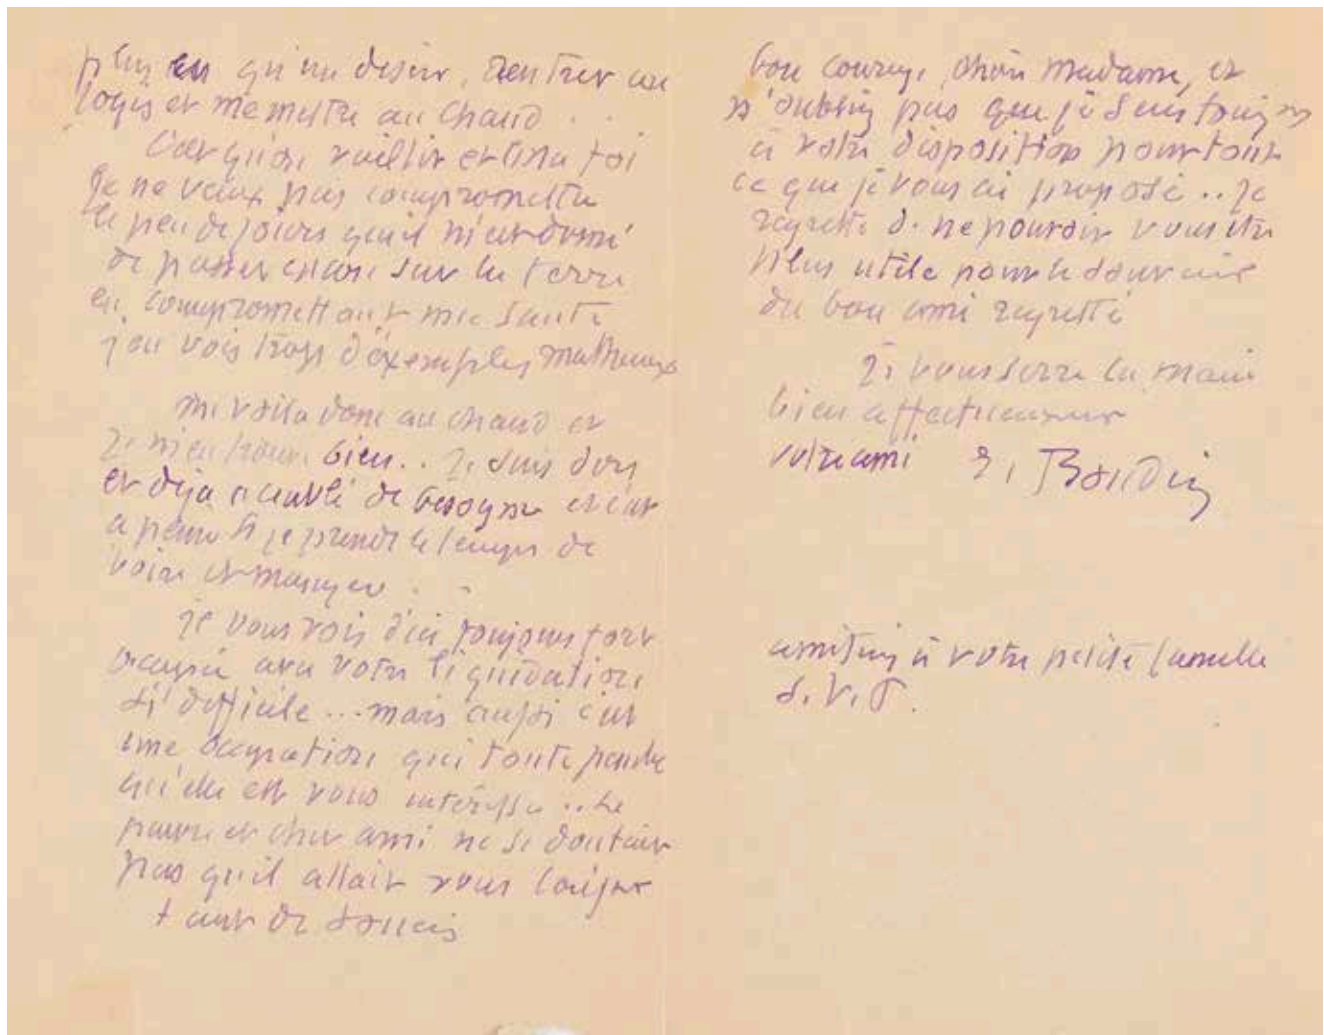 plus eu qu'un désir, rentrer au
logis et me mettre au chaud . .
C'est qu'on vieillit et ma foi
je ne veux pas compromettre
le peu de jours qu'il m'est donné
de passer encore sur la terre
en compromettant ma santé
j'en vois trop d'exemples malheureux
me voilà donc au chaud et
je m'en trouve bien.. je suis donc
et déjà accablé de besogne et c'est
à peine si je prends le temps de
boire et manger . .
je vous vois d'ici toujours fort
occupée avec votre liquidation
si difficile ... mais aussi c'est
une occupation qui toute pénible
qu'elle est vous intéresse .. Le
pauvre et cher ami ne se doutait
pas qu'il allait vous laisser
tant de soucis
bon courage, chère Madame, et
n'oubliez pas que je suis toujours
à votre disposition pour tout
ce que je vous ai proposé .. je
regrette de ne pouvoir vous être
plus utile pour le souvenir
du bon ami regretté
Je vous serre la main
bien affectueusement
votre ami E. Boudin
amitiés à votre petite famille
S. V. P.